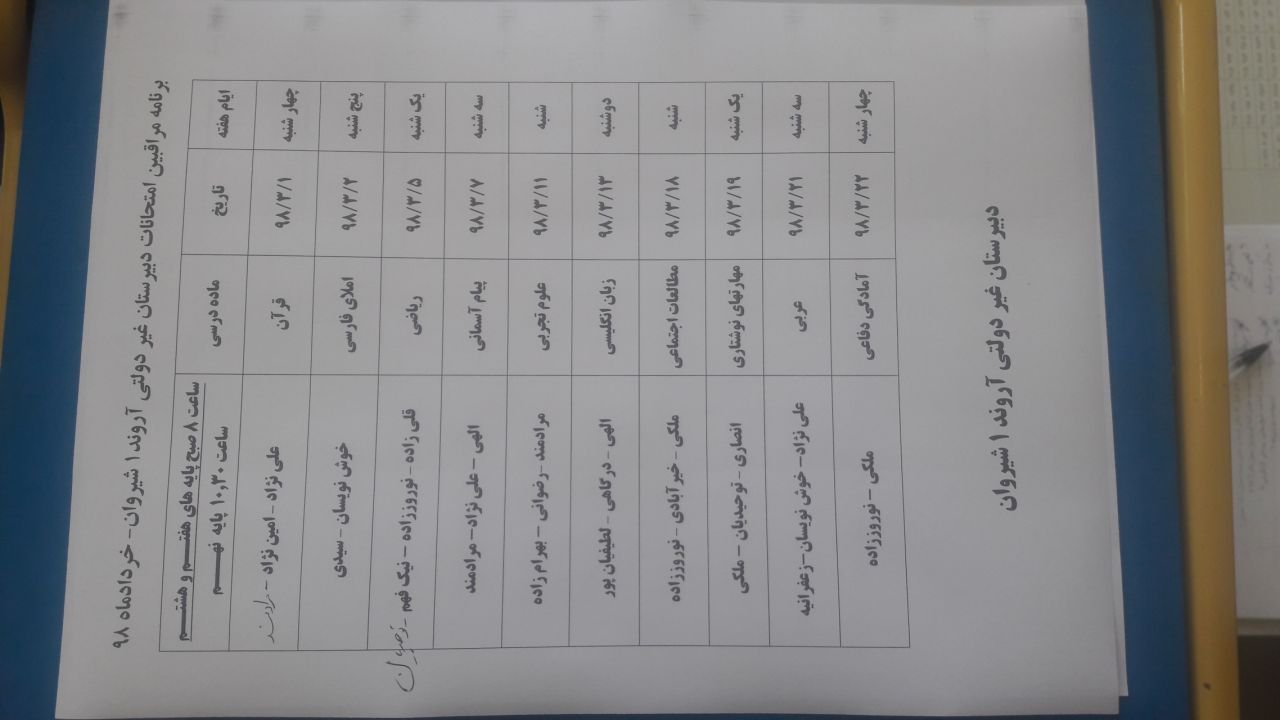 برنامه مراقبین امتحانات دبیرستان غیر دولتی آروند ۱ شیروان- خردادماه ۹۸
ایام هفته تاریخ ماده درسی ساعت ۸ صبح پایه های هفتـــم و هشتـــم
ساعت ۱۰,۳۰ پایه نهـــم
چهار شنبه ۹۸/۳/۱ قرآن علی نژاد - امین نژاد - مرادمند
پنج شنبه ۹۸/۳/۲ املای فارسی خوش نویسان - سیدی
یک شنبه ۹۸/۳/۵ ریاضی قلی زاده - نوروززاده – نیک فهم -
سه شنبه ۹۸/۳/۷ پیام آسمانی الهی – علی نژاد – مرادمند
شنبه ۹۸/۳/۱۱ علوم تجربی مرادمند - رضوانی – بهرام زاده
دوشنبه ۹۸/۳/۱۳ زبان انگلیسی الهی - درگاهی - لطیفیان پور
شنبه ۹۸/۳/۱۸ مطالعات اجتماعی ملکی - خیر آبادی - نوروززاده
یک شنبه ۹۸/۳/۱۹ مهارتهای نوشتاری انصاری - توحیدیان – ملکی
سه شنبه ۹۸/۳/۲۱ عربی علی نژاد – خوش نویسان – زعفرانیه
چهار شنبه ۹۸/۳/۲۲ آمادگی دفاعی ملکی – نوروززاده
دبیرستان غیر دولتی آروند ۱ شیروان